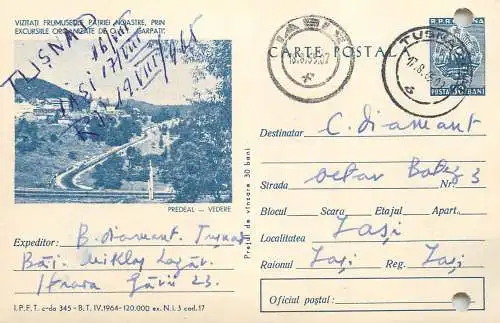 VIZITAȚI FRUMUSEȚILE PATRIEI NOASTRE, PRIN
EXCURSIILE ORGANIZATE DE O.N.T. "CARPAȚI".
TUȘNAD
16/VIII
IAȘI 17/VIII
19.VIII/965
PREDEAL — VEDERE
Expeditor: B. diamant. Tușnad
Băi. Miklos Lazăr.
Strada Gării 23.
I.P.F.T. c-da 345 - B.T. IV.1964 - 120.000 ex. N.I. 3 cod. 17
Prețul de vînzare 30 bani
CARTE POSTALĂ
IAȘI
TUȘNAD
R.P.ROMINA
POSTA 30 BANI
Destinatar C. Diamant
Strada Octav Botez Nr. 3
Blocul Scara Etajul Apart.
Localitatea Iași
Raionul Iași Reg. Iași
Oficiul poștal: